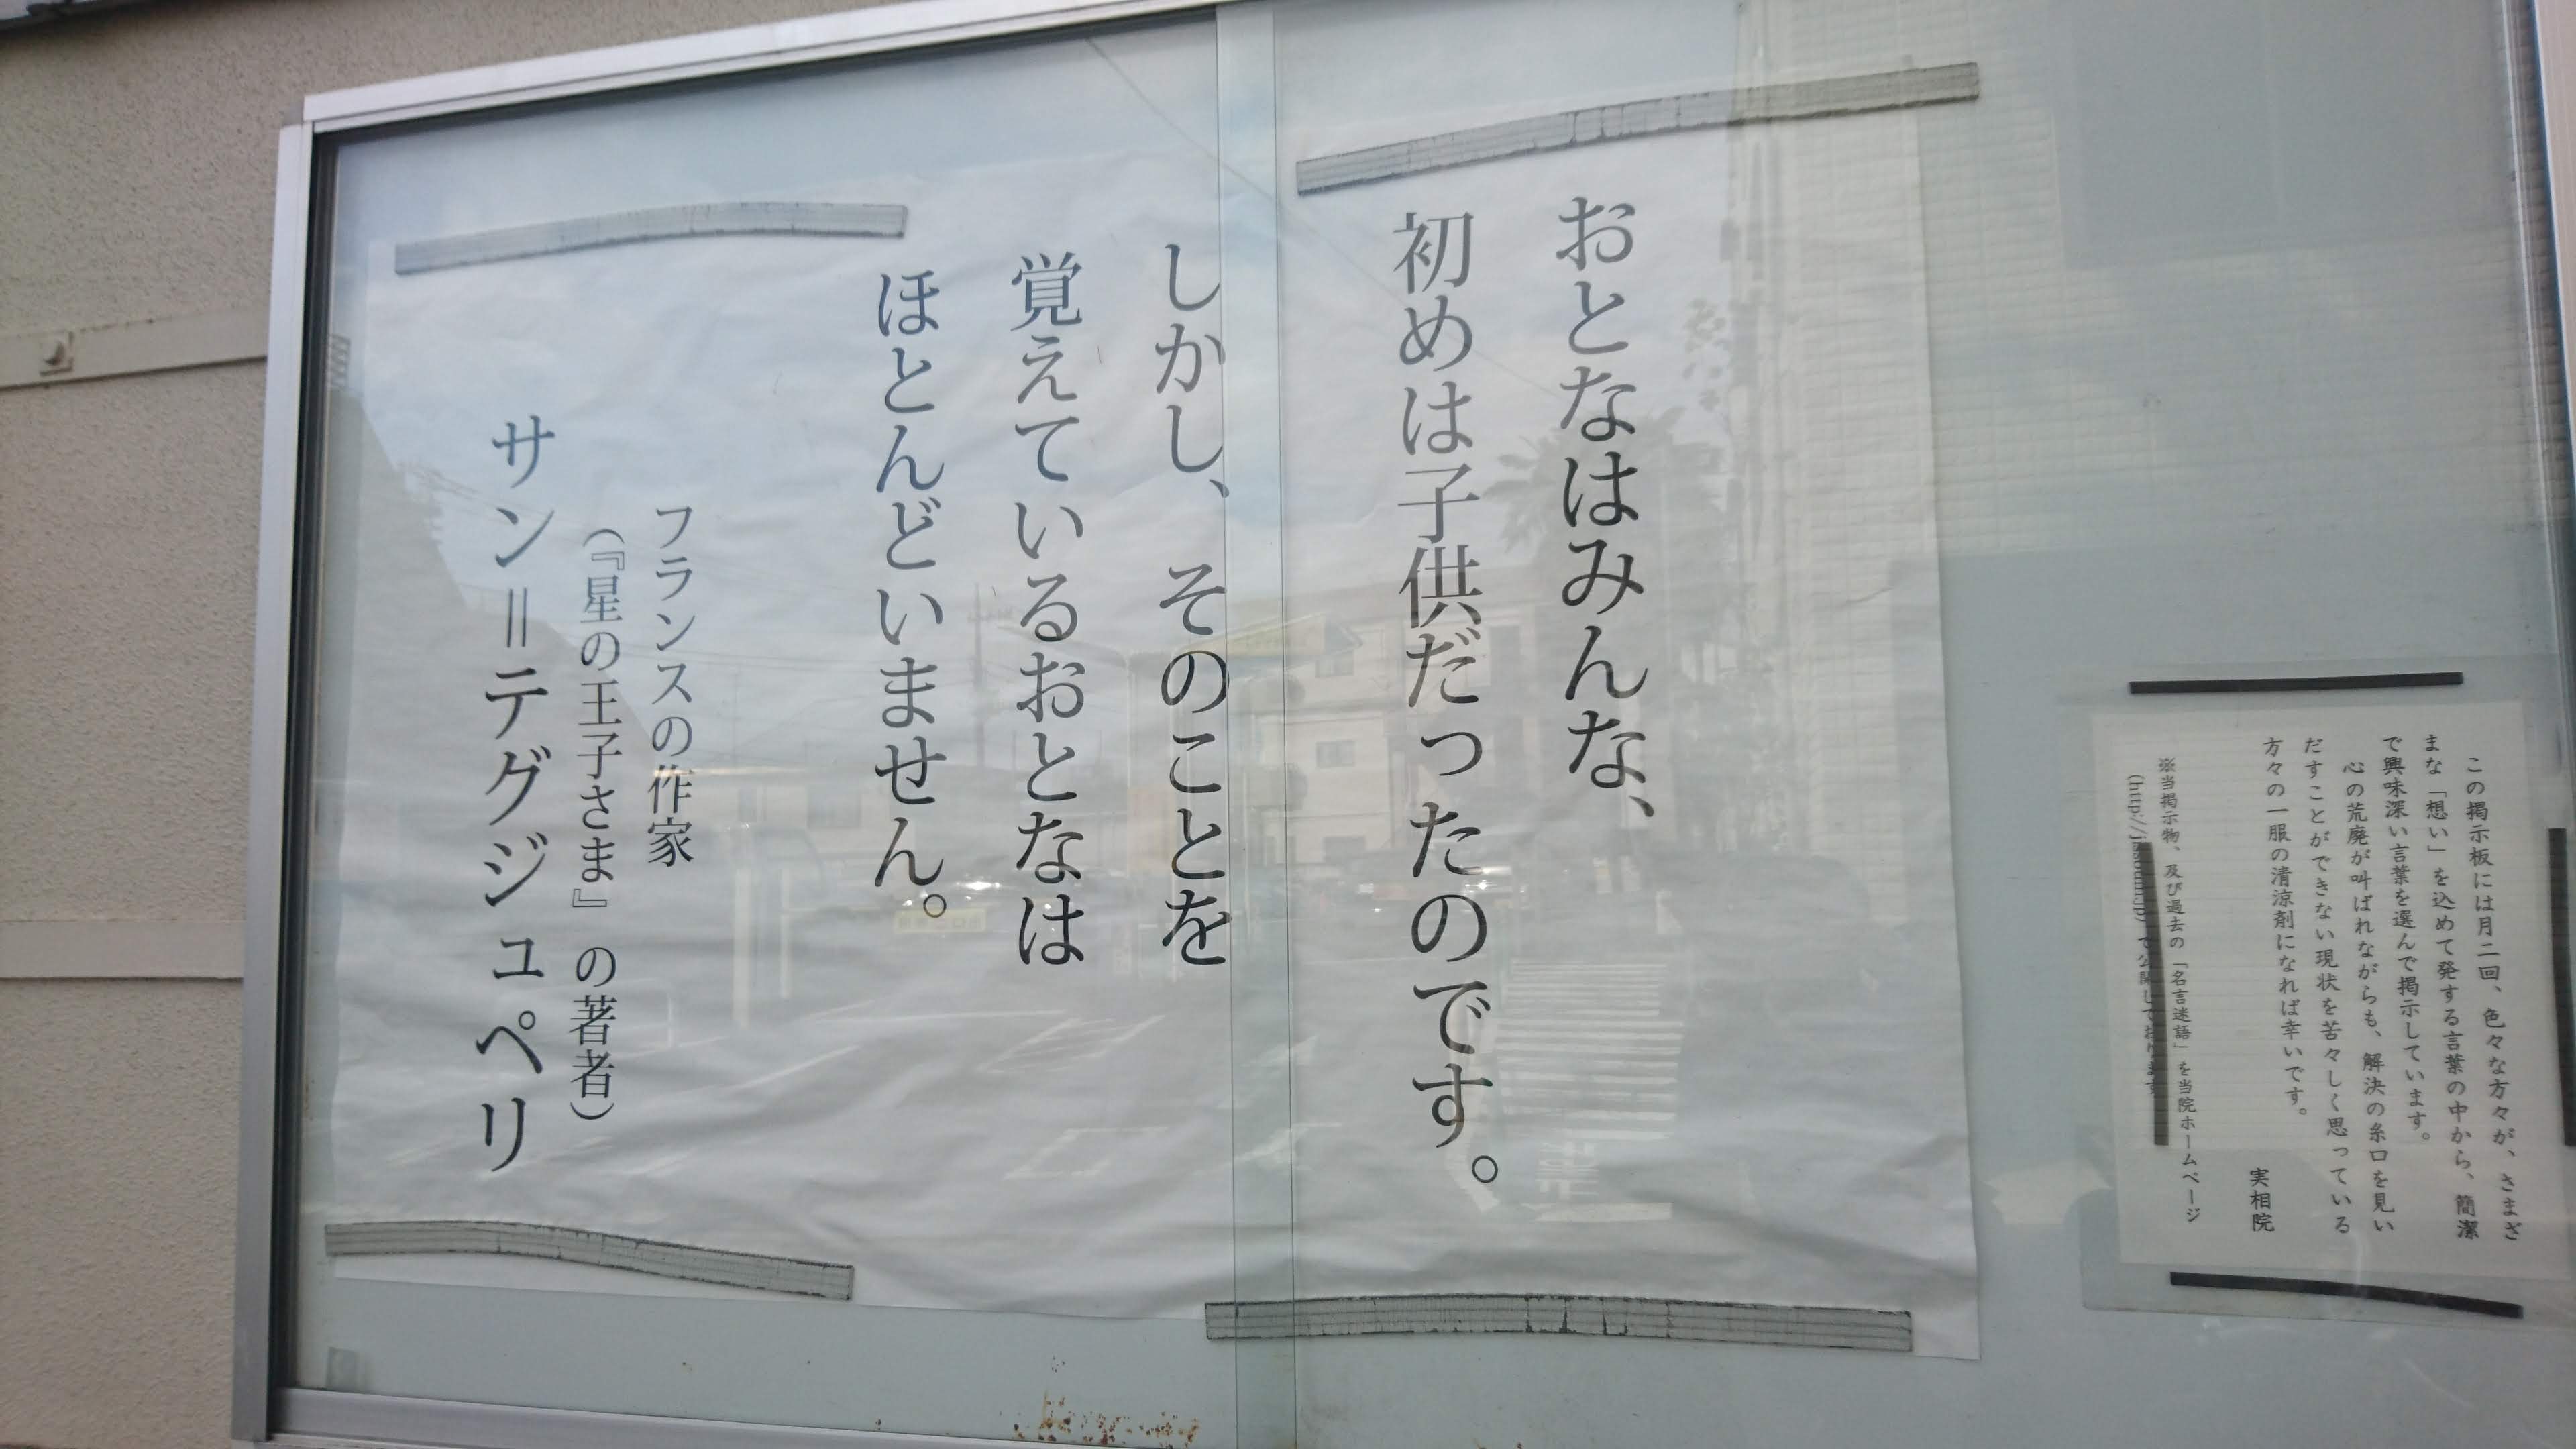 おとなはみんな、
初めは子供だったのです。
しかし、そのことを
覚えているおとなは
ほとんどいません。
フランスの作家
（『星の王子さま』の著者）
サン＝テグジュペリ
この掲示板には月二回、色々な方々が、さまざ
まな「想い」を込めて発する言葉の中から、簡潔
で興味深い言葉を選んで掲示しています。
心の荒廃が叫ばれながらも、解決の糸口を見い
だすことができない現状を苦々しく思っている
方々の一服の清涼剤になれば幸いです。
実相院
※当掲示物、及び過去の「名言迷語」を当院ホームページ
で公開しております